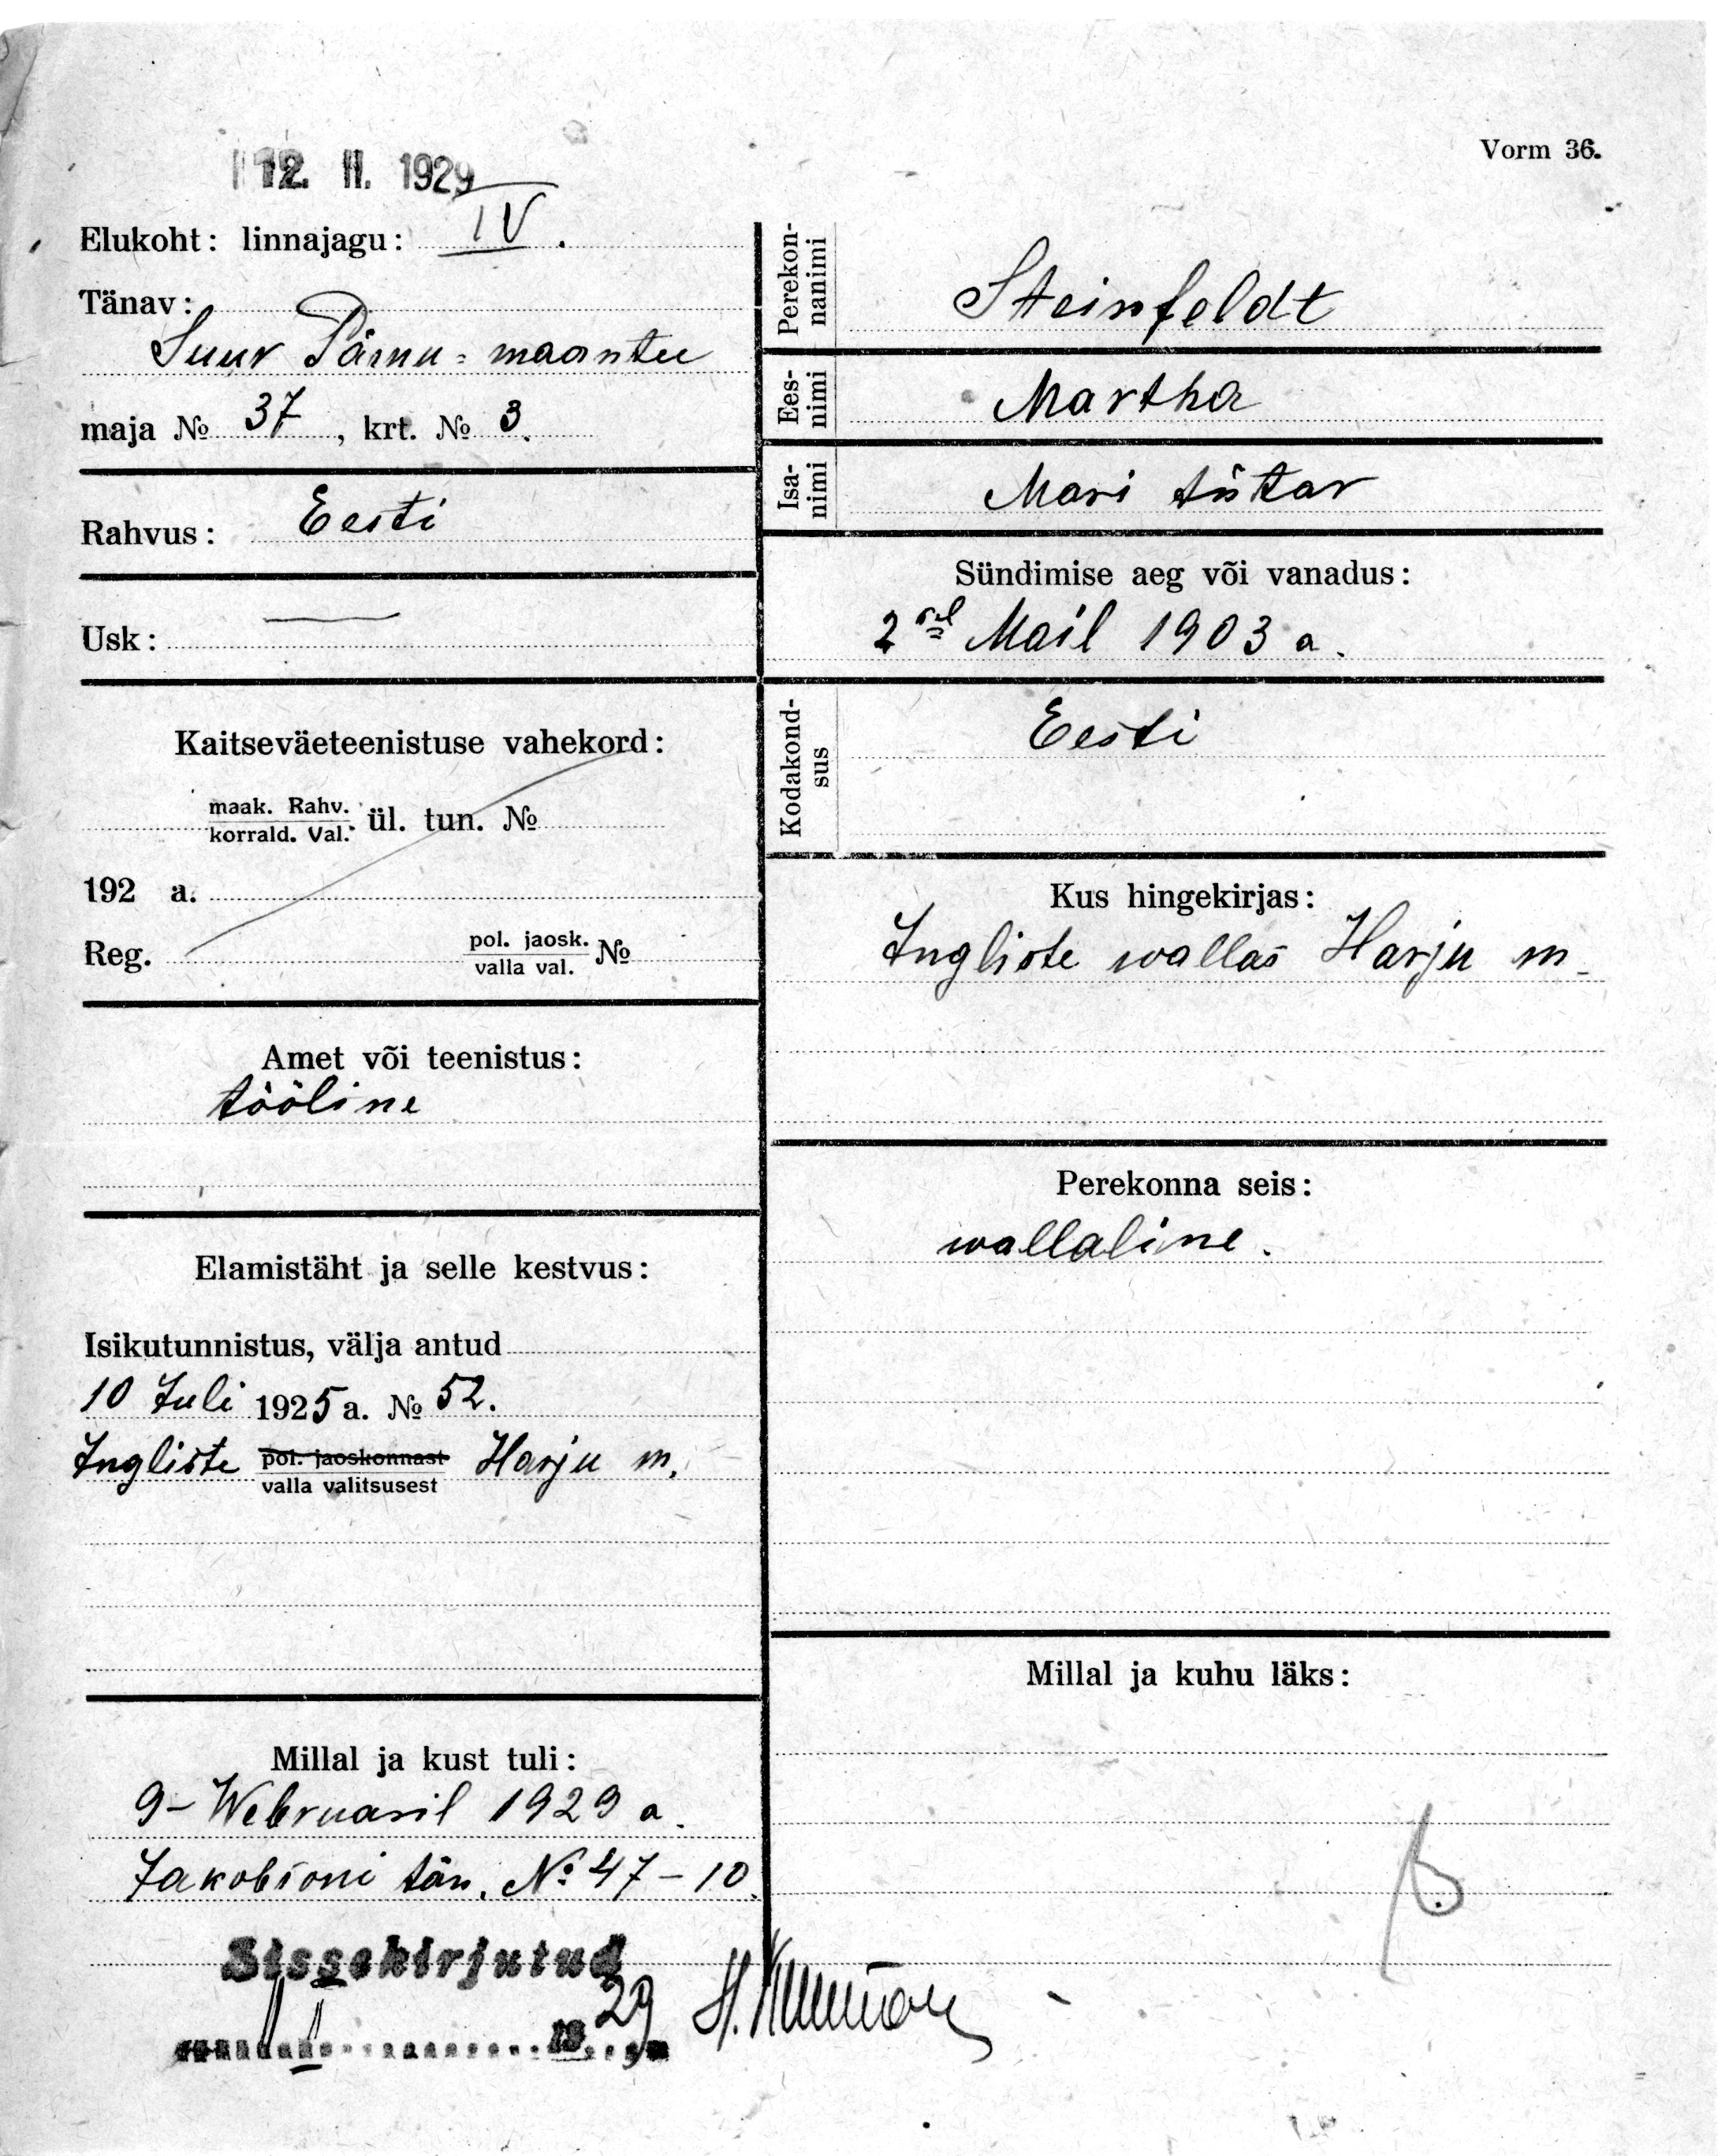 Vorm 36.
12. II. 1929
Elukoht: linnajagu: IV.
Tänav:
Suur Pärnu-maantee
maja № 37, krt. № 3.
Rahvus: Eesti
Usk: —
Kaitseväeteenistuse vahekord:
maak. Rahv.
korrald. Val. ül. tun. №
192 a.
Reg. pol. jaosk. №
valla val.
Amet või teenistus:
tööline
Elamistäht ja selle kestvus:
Isikutunnistus, välja antud
10 Juli 1925 a. № 52.
Ingliste pol. jaoskonnast Harju m.
valla valitsusest
Millal ja kust tuli:
9- Webruaril 1929 a.
Jakobsoni tän. № 47-10.
Sissekirjutud
19 29
Perekon-
nanimi
Steinfeldt
Ees-
nimi
Martha
Isa-
nimi
Mari tütar
Sündimise aeg või vanadus:
2sel Mail 1903 a.
Kodakond-
sus
Eesti
Kus hingekirjas:
Ingliste wallas Harju m.
Perekonna seis:
wallaline.
Millal ja kuhu läks: